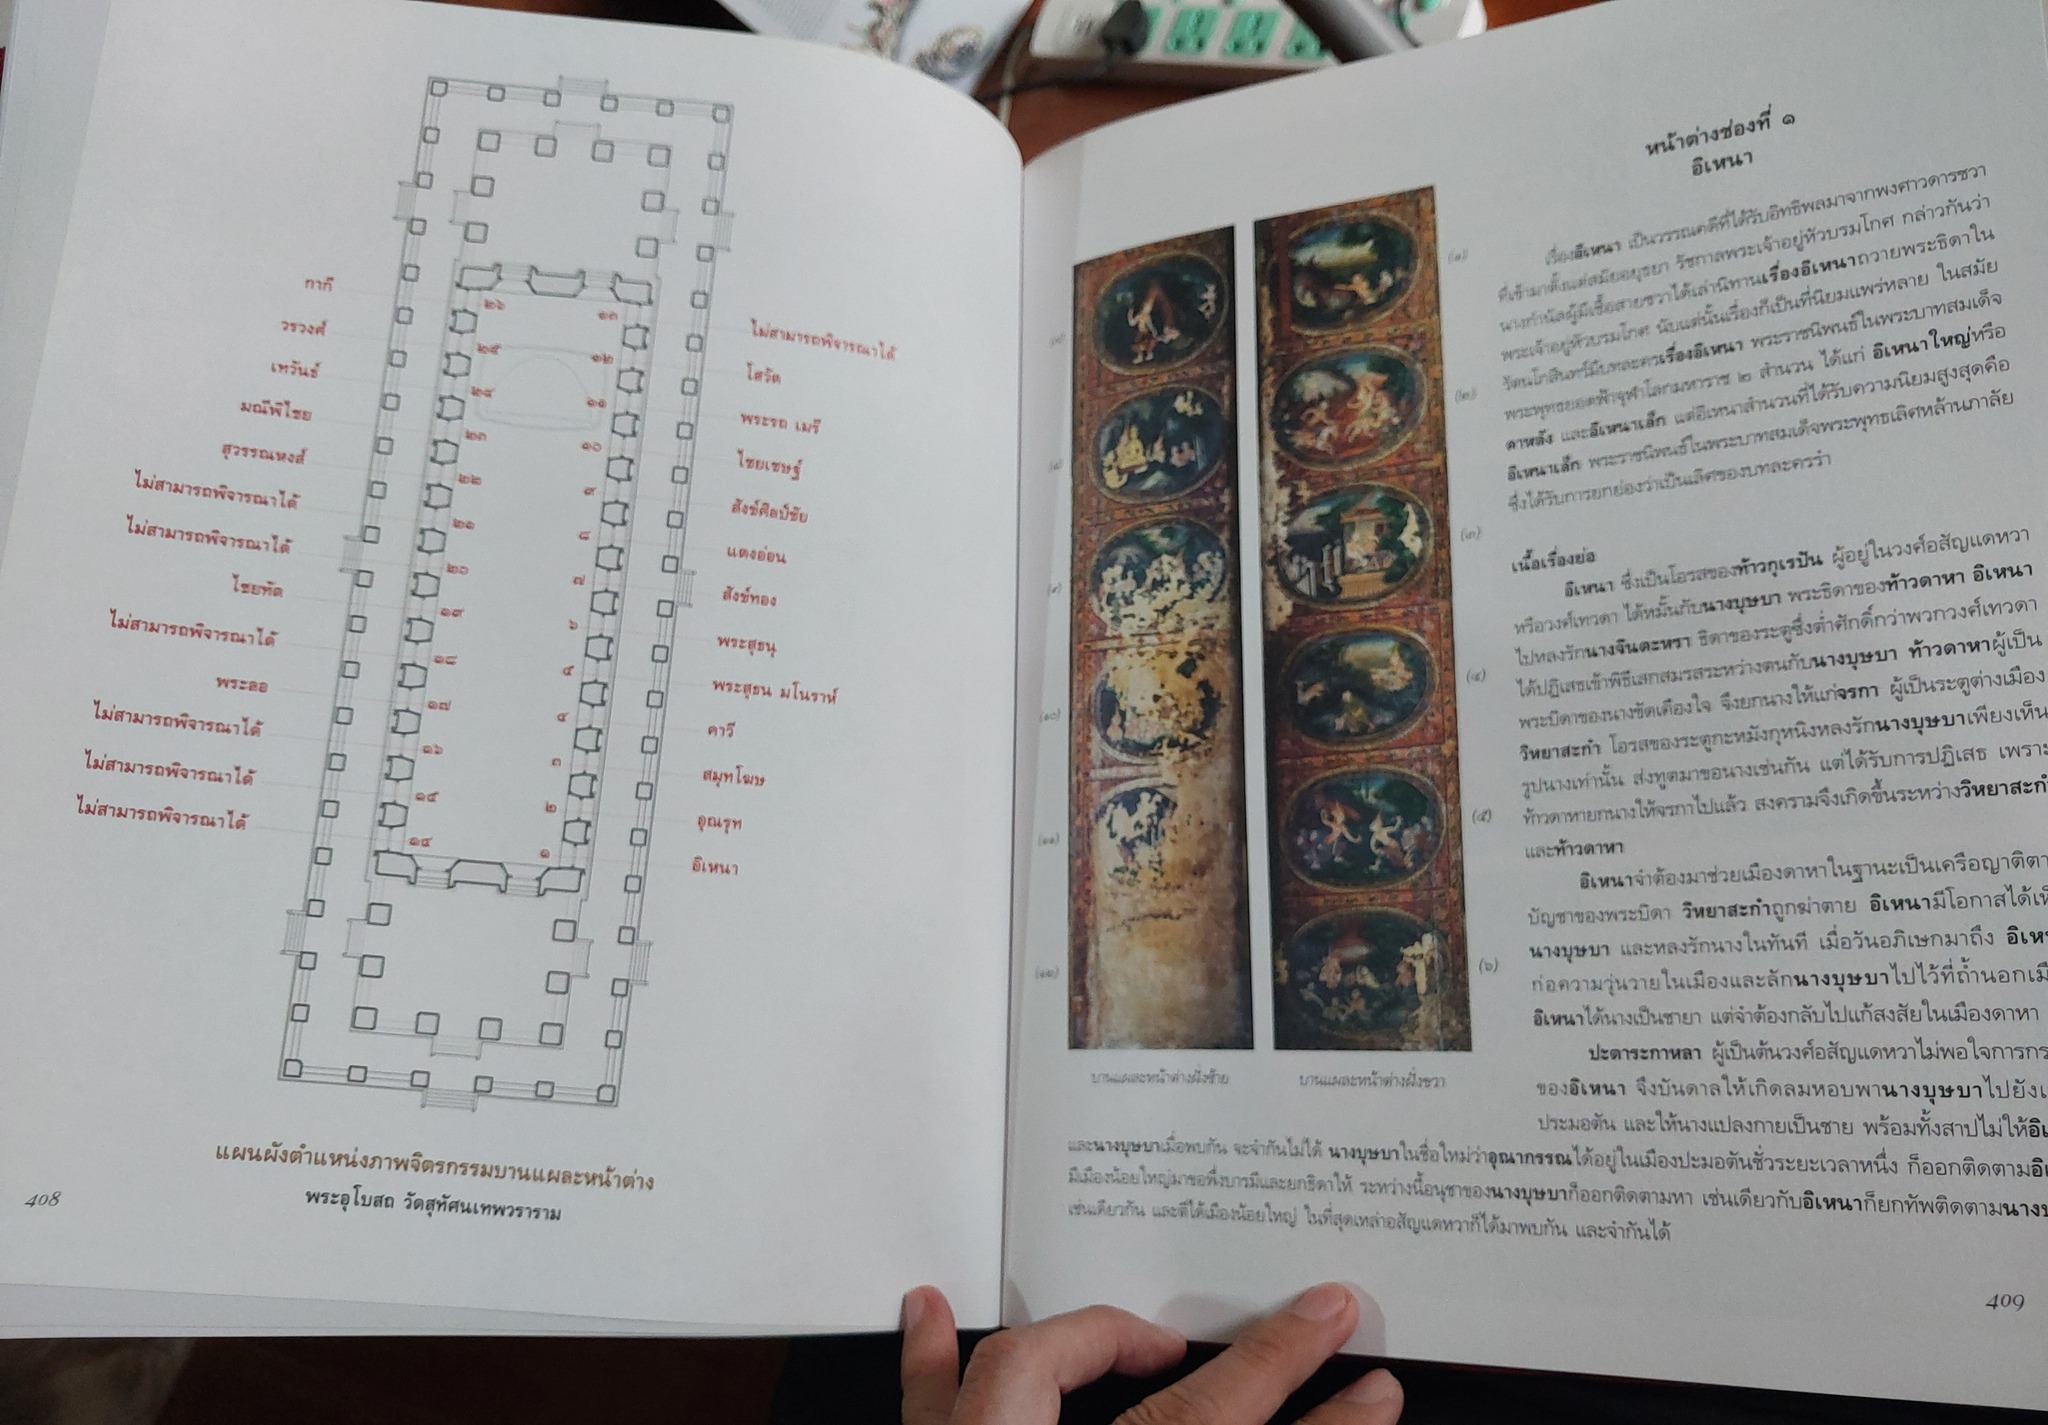 กากี
วรวงศ์
เทวันธ์
มณีพิไชย
สุวรรณหงส์
ไม่สามารถพิจารณาได้
ไม่สามารถพิจารณาได้
ไชยทัต
ไม่สามารถพิจารณาได้
พระลอ
ไม่สามารถพิจารณาได้
ไม่สามารถพิจารณาได้
ไม่สามารถพิจารณาได้
๒๖
๒๕
๒๔
๒๓
๒๒
๒๑
๒๐
๑๙
๑๘
๑๗
๑๖
๑๕
๑๔
๑๓
๑๒
๑๑
๑๐
๙
๘
๗
๖
๕
๔
๓
๒
๑
ไม่สามารถพิจารณาได้
โสวัต
พระรถ เมรี
ไชยเชษฐ์
สังข์ศิลป์ชัย
แตงอ่อน
สังข์ทอง
พระสุธนู
พระสุธน มโนราห์
คาวี
สมุทโฆษ
อุณรุท
อิเหนา
แผนผังตำแหน่งภาพจิตรกรรมบานแผละหน้าต่าง
พระอุโบสถ วัดสุทัศนเทพวราราม
408
หน้าต่างช่องที่ ๑
อิเหนา
เรื่องอิเหนา เป็นวรรณคดีที่ได้รับอิทธิพลมาจากพงศาวดารชวา
ที่เข้ามาตั้งแต่สมัยอยุธยา รัชกาลพระเจ้าอยู่หัวบรมโกศ กล่าวกันว่า
นางกำนัลผู้มีเชื้อสายชวาได้เล่านิทานเรื่องอิเหนาถวายพระธิดาใน
พระเจ้าอยู่หัวบรมโกศ นับแต่นั้นเรื่องก็เป็นที่นิยมแพร่หลาย ในสมัย
รัตนโกสินทร์มีบทละครเรื่องอิเหนา พระราชนิพนธ์ในพระบาทสมเด็จ
พระพุทธยอดฟ้าจุฬาโลกมหาราช ๒ สำนวน ได้แก่ อิเหนาใหญ่หรือ
ดาหลัง และอิเหนาเล็ก แต่อิเหนาสำนวนที่ได้รับความนิยมสูงสุดคือ
อิเหนาเล็ก พระราชนิพนธ์ในพระบาทสมเด็จพระพุทธเลิศหล้านภาลัย
ซึ่งได้รับการยกย่องว่าเป็นเลิศของบทละครรำ
เนื้อเรื่องย่อ
อิเหนา ซึ่งเป็นโอรสของท้าวกุเรปัน ผู้อยู่ในวงศ์อสัญแดหวา
หรือวงศ์เทวดา ได้หมั้นกับนางบุษบา พระธิดาของท้าวดาหา อิเหนา
ไปหลงรักนางจินตะหรา ธิดาของระตูซึ่งต่ำศักดิ์กว่าพวกวงศ์เทวดา
ได้ปฏิเสธเข้าพิธีเสกสมรสระหว่างตนกับนางบุษบา ท้าวดาหาผู้เป็น
พระบิดาของนางขัดเคืองใจ จึงยกนางให้แก่จรกา ผู้เป็นระตูต่างเมือง
วิหยาสะกำ โอรสของระตูกะหมังกุหนิงหลงรักนางบุษบาเพียงเห็น
รูปนางเท่านั้น ส่งทูตมาขอนางเช่นกัน แต่ได้รับการปฏิเสธ เพราะ
ท้าวดาหายกนางให้จรกาไปแล้ว สงครามจึงเกิดขึ้นระหว่างวิหยาสะกำ
และท้าวดาหา
อิเหนาจำต้องมาช่วยเมืองดาหาในฐานะเป็นเครือญาติตา
บัญชาของพระบิดา วิหยาสะกำถูกฆ่าตาย อิเหนามีโอกาสได้เห็
นางบุษบา และหลงรักนางในทันที เมื่อวันอภิเษกมาถึง อิเหน
ก่อความวุ่นวายในเมืองและลักนางบุษบาไปไว้ที่ถ้ำนอกเมื
อิเหนาได้นางเป็นชายา แต่จำต้องกลับไปแก้สงสัยในเมืองดาหา
ปะตาระกาหลา ผู้เป็นต้นวงศ์อสัญแดหวาไม่พอใจการกร
ของอิเหนา จึงบันดาลให้เกิดลมหอบพานางบุษบาไปยังเ
ประมอตัน และให้นางแปลงกายเป็นชาย พร้อมทั้งสาปไม่ให้อิเ
และนางบุษบาเมื่อพบกัน จะจำกันไม่ได้ นางบุษบาในชื่อใหม่ว่าอุณากรรณได้อยู่ในเมืองปะมอตันชั่วระยะเวลาหนึ่ง ก็ออกติดตามอิเ
มีเมืองน้อยใหญ่มาขอพึ่งบารมีและยกธิดาให้ ระหว่างนี้อนุชาของนางบุษบาก็ออกติดตามหา เช่นเดียวกับอิเหนาก็ยกทัพติดตามนางบุ
เช่นเดียวกัน และตีได้เมืองน้อยใหญ่ ในที่สุดเหล่าอสัญแดหวาก็ได้มาพบกัน และจำกันได้
(๗)
(๘)
(๙)
(๑๐)
(๑๑)
(๑๒)
(๑)
(๒)
(๓)
(๔)
(๕)
(๖)
บานแผละหน้าต่างฝั่งซ้าย
บานแผละหน้าต่างฝั่งขวา
409